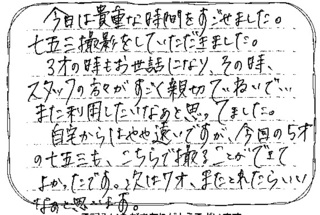 今日は貴重な時間をすごせました。
七五三撮影をしていただきました。
3才の時もお世話になり、その時、
スタッフの方々がすごく親切でていねいで…
また利用したいなあと思ってました。
自宅からはやや遠いですが、今回の5才
の七五三も、こちらで撮ることができて
よかったです。次は7才、またとれたらいい
なあと思います。